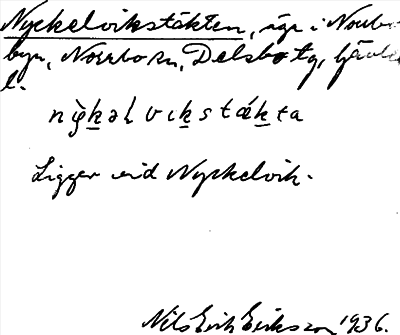 Nyckelvikstäkten, äga i Norrbo-
byn, Norrbo sn, Delsbo tg, Gävleb.
l.
nyk̲əlvɪk̲stæk̲ta
Ligger vid Nyckelvik.
Nils Erik Eriksson 1936.